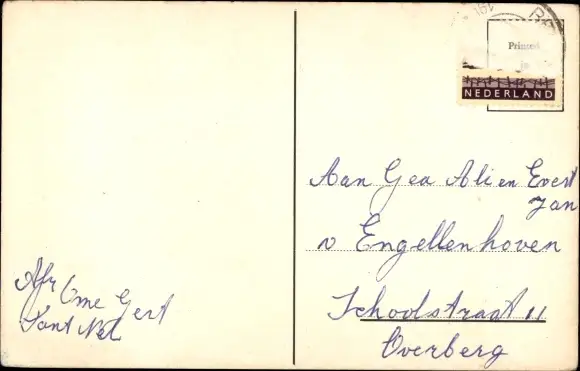 Printed
in
NEDERLAND
Aan Gea Alien Evert
Jan
v Engellenhoven
Schoolstraat 11
Overberg
Afz Ome Gert
Tant Nel